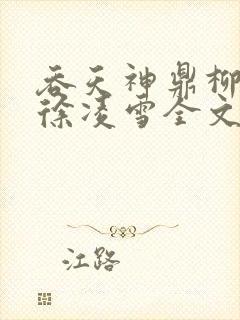 吞天神鼎柳
徐凌雪全文
江路